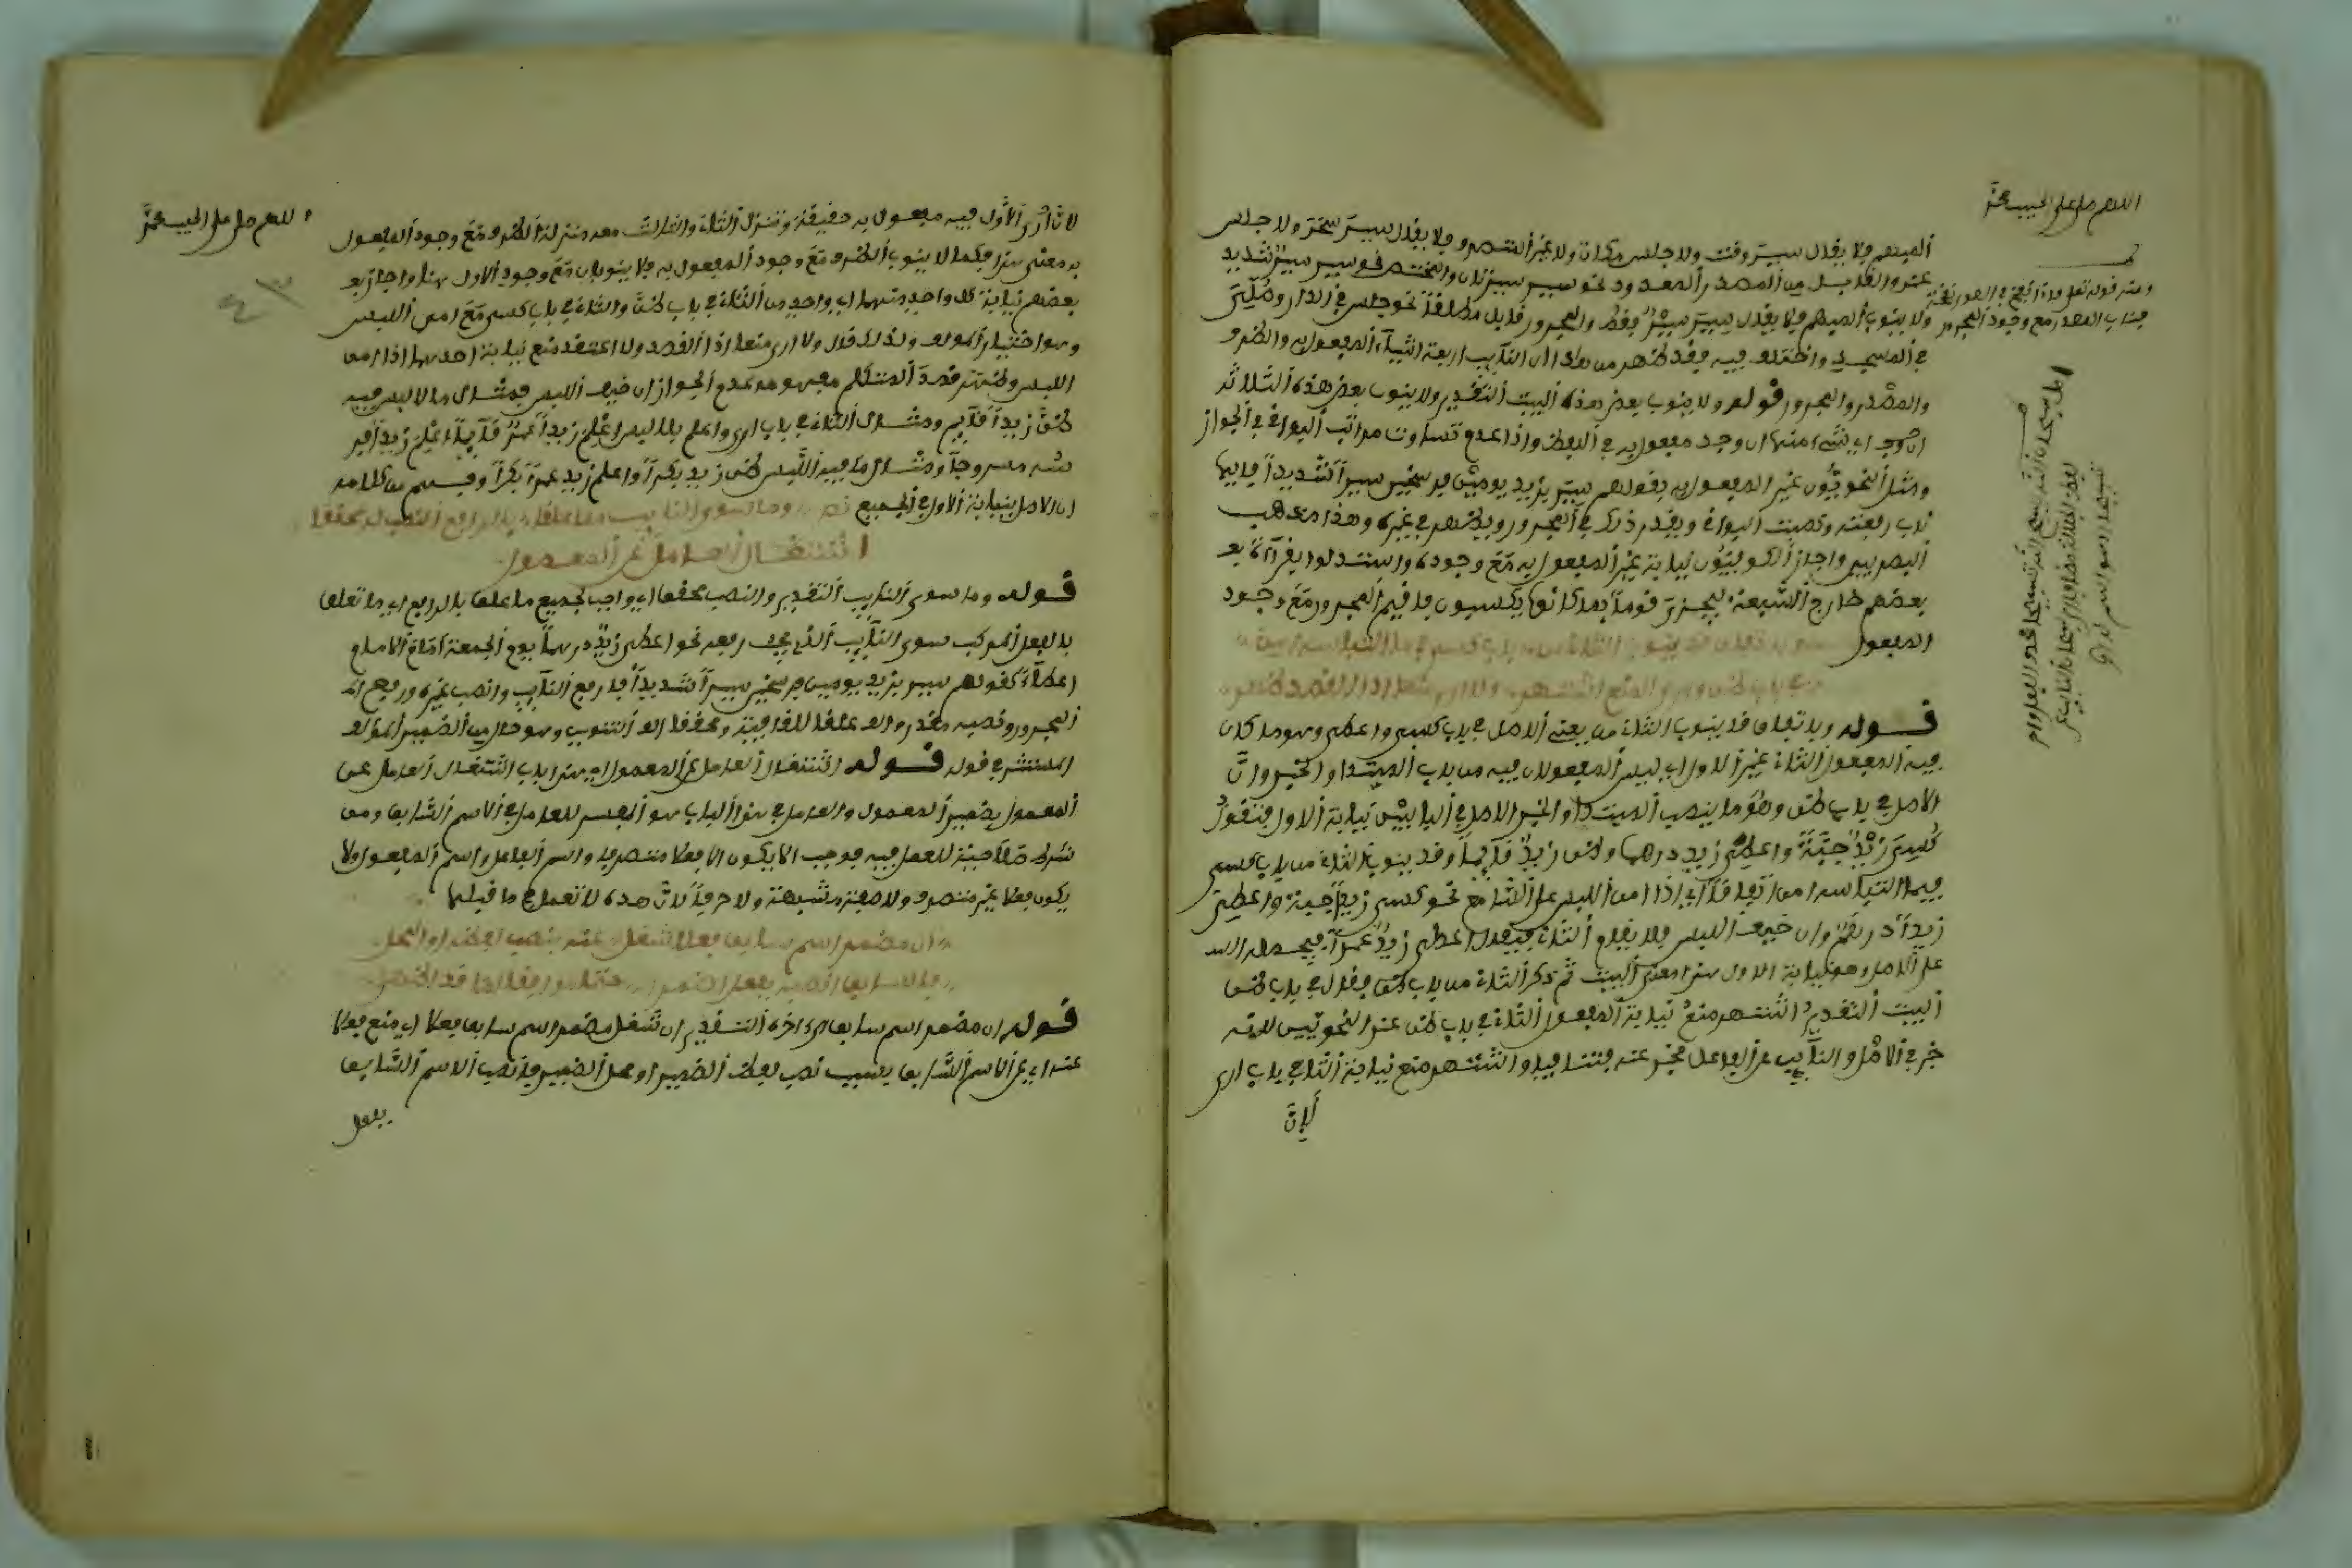 اللهم صل على الحبيب محمد
المبهم فلا يقال سير وقت ولا جلس مكان ولا غير المتصرف فلا يقال سير سحر ولا جلس
عند والقابل من المصدر المعدود نحو سير سيرتان والمختص نحو سير سير شديد
ولا ينوب المبهم فلا يقال سير سير فقط والمجرور قابل مطلقا نحو جلس في الدار وصلي
في المسجد واختلف فيه فقد ظهر من هذا ان النائب اربعة اشياء المفعول به والظرف
والمصدر والمجرور قوله ولا ينوب بعض هذه البيت التقدير ولا ينوب بعض هذه الثلاثة
اي شيء منها ان وجد مفعول به في اللفظ واذا عدم تساوت مراتب البواقي في الجواز
ومثل النحويون غير المفعول به بقولهم سير بزيد يومين فرسخين سيرا شديدا فايها
ناب رفعته ونصبت البواقي ويقدر ذلك في المجرور ويظهر في غيره وهذا مذهب
البصريين واجاز الكوفيون نيابة غير المفعول به مع وجوده واستدلوا بقراءة
بعضهم خارج السبعة ليجزى قوما بما كانوا يكسبون فاقيم المجرور مع وجود
المفعول وباتفاق قد ينوب الثان من باب كسى فيما التباسه امن
في باب ظن وارى المنع اشتهر ولا ارى منعا اذا القصد ظهر
قوله وباتفاق قد ينوب الثان من يعني الاصل في باب كسى واعطى وهو ما كان
فيه المفعول الثان غير الاول اي ليس المفعولان فيه من باب المبتدا والخبر وان
الاصل في باب ظن وهو ما ينصب المبتدا والخبر الاصل في البابين نيابة الاول فتقول
كسي زيد جبة واعطي زيد درهما وظن زيد قائما وقد ينوب الثان من باب كسى
فيما التباسه امن اتفاقا اي اذا امن اللبس على السامع نحو كسي زيدا جبة واعطي
زيدا درهم وان خيف اللبس فلا يقام الثان فيقال اعطي زيد عمرا
على الاصل وهو نيابة الاول هذا معنى البيت ثم ذكر الثان من باب ظن فقال في باب ظن
البيت التقدير اشتهر منع نيابة المفعول الثان في باب ظن عند النحويين لانه
خبر في الاصل والنائب عن الفاعل مخبر عنه فتنافيا واشتهر منع نيابة الثان في باب ارى
لان
ومنه قوله تعالى فاذا نفخ في الصور نفخة
فناب المصدر مع وجود المجرور
اللهم صل على الحبيب محمد
لان الاول فيه مفعول به حقيقة وتنزل الثان والثالث معه منزلة الظرف مع وجود المفعول
به معنى هذا فكما لا ينوب الظرف مع وجود المفعول به فلا ينوبان مع وجود الاول هنا واجاز
بعضهم نيابة كل واحد منهما اي واحد من الثان في باب ظن والثان في باب كسى مع امن اللبس
وهو اختيار المؤلف ولذلك قال ولا ارى منعا اذا القصد ولا اعتقد منع نيابة احدهما اذا امن
اللبس وظهر قصد المتكلم مفهومه عدم الجواز ان خيف اللبس فمثال ما لا لبس فيه
ظن زيدا قائم ومثال الثان في باب ارى واعلم بلا لبس
ومثال ما فيه اللبس ظن زيد بكرا واعلم زيد عمرا بكرا وفهم من كلامه
ان الاصل نيابة الاول في الجميع وما سوى النائب مما علقا بالرافع النصب له محققا
اشتغال العامل عن المعمول
قوله وما سوى النائب التقدير والنصب محققا اي واجب لجميع ما علقا بالرافع اي ما تعلق
بالفعل المركب سوى النائب الذي يجب رفعه نحو اعطي زيد درهما يوم الجمعة امام الامام
اعطاء كقولهم سير بزيد يومين فرسخين سيرا شديدا فارفع النائب وانصب غيره ورفع
المجرور ونصبه مقدر والف علقا للقافية ومحققا الف التنوين وهو حال من الضمير المؤلف
المستتر في قوله قوله اشتغال العامل عن المعمول اي هذا باب اشتغال العامل عن
المعمول بضمير المعمول والعامل في هذا الباب هو المفسر للعامل في الاسم السابق ومن
شرطه صلاحية للعمل فيه فوجب الا يكون الا فعلا متصرفا واسم الفاعل واسم المفعول ولا
يكون فعلا غير متصرف ولا صفة مشبهة ولا حرفا لان هذه لا تعمل في ما قبلها
ان مضمر اسم سابق فعلا شغل عنه بنصب لفظه او المحل
فالسابق انصبه بفعل اضمرا حتما موافق لما قد اظهرا
قوله ان مضمر اسم سابق الى اخره التقدير ان شغل مضمر اسم سابق فعلا اي منع فعلا
عنه اي عن الاسم السابق بسبب نصب لفظ الضمير او محل الضمير فانصب الاسم السابق
بفعل